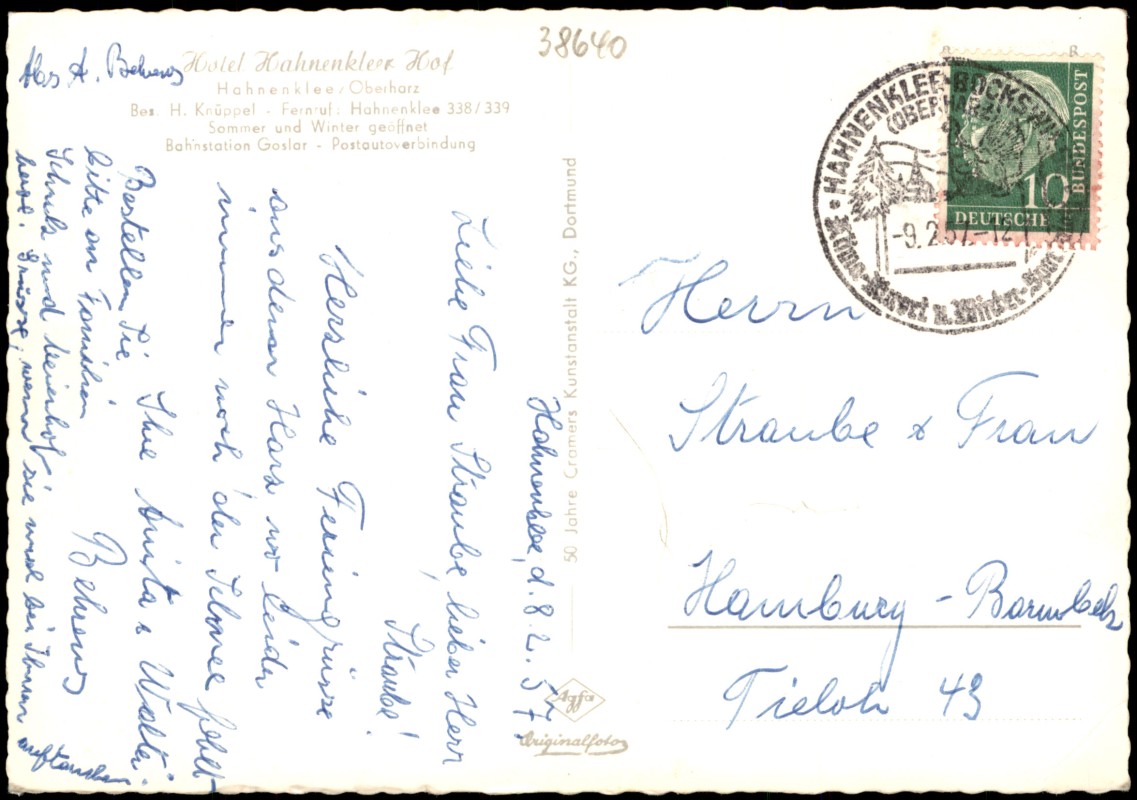 38640
Hotel Hahnenkleer Hof
Hahnenklee/Oberharz
Bes. H. Knüppel - Fernruf: Hahnenklee 338/339
Sommer und Winter geöffnet
Bahnstation Goslar - Postautoverbindung
Abs. A. Behrens
Hahnenklee, d. 8.2.57.
Liebe Frau Straube, lieber Herr
Straube!
Herzliche Feriengrüsse
aus dem Harz wo leider
immer noch der Schnee fehlt
Ihre Anita & Walter
Behrens
Bestellen Sie
bitte an Familien
Schulz und
herzl. Grüsse, wenn sie mal bei Ihnen
auftauchen
50 Jahre Cramers Kunstanstalt KG., Dortmund
Agfa
Originalfoto
HAHNENKLEE-BOCKSWIESE
(OBERHARZ)
-9.2.57.-12
Klima-Kurort u. Winter-Sport
10
DEUTSCHE
BUNDESPOST
Herrn
Straube & Frau
Hamburg - Barmbek
Tieloh 43